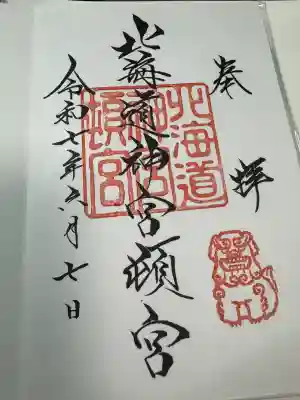 奉拝
北海道神宮頓宮
令和七年六月七日
北海道神宮頓宮